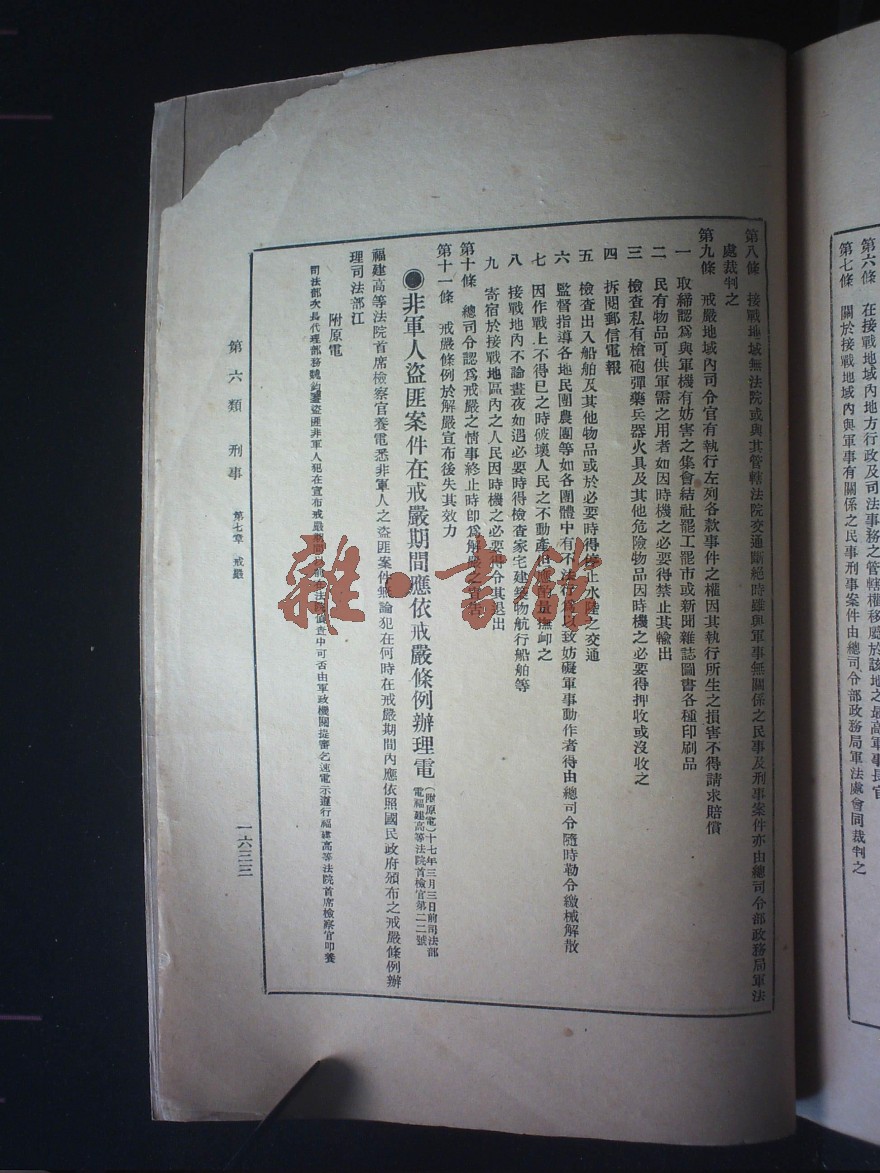 第六條　在接戰地域內地方行政及司法事務之管轄權移屬於該地之最高軍事長官
第七條　關於接戰地域內與軍事有關係之民事刑事案件由總司令部政務局軍法處會同裁判之
第八條　接戰地域無法院或與其管轄法院交通斷絕時雖與軍事無關係之民事及刑事案件亦由總司令部政務局軍法
處裁判之
第九條　戒嚴地域內司令官有執行左列各款事件之權因其執行所生之損害不得請求賠償
一　取締認爲與軍機有妨害之集會結社罷工罷市或新聞雜誌圖書各種印刷品
二　民有物品可供軍需之用者如因時機之必要得禁止其輸出
三　檢查私有槍砲彈藥兵器火具及其他危險物品因時機之必要得押收或沒收之
四　拆閱郵信電報
五　檢查出入船舶及其他物品或於必要時得停止水陸之交通
六　監督指導各地民團農團等如各團體中有不法行爲以致妨礙軍事動作者得由總司令隨時勒令繳械解散
七　因作戰上不得已之時破壞人民之不動產但應酌量撫卹之
八　接戰地內不論晝夜如遇必要時得檢查家宅建築物航行船舶等
九　寄宿於接戰地區內之人民因時機之必要得令其退出
第十條　總司令認爲戒嚴之情事終止時卽爲解嚴之宣吿
第十一條　戒嚴條例於解嚴宣布後失其效力
●非軍人盜匪案件在戒嚴期間應依戒嚴條例辦理電（附原電）十七年三月三日前司法部
電福建高等法院首檢官第二二號
福建高等法院首席檢察官養電悉非軍人之盜匪案件無論犯在何時在戒嚴期間內應依照國民政府頒布之戒嚴條例辦
理司法部江
附原電
司法部次長代理部務魏鈞鑒盜匪非軍人犯在宣布戒嚴期間以前在法院偵查中可否由軍政機關提審乞速電示遵行福建高等法院首席檢察官叩養
第六類　刑事　第七章　戒嚴
一六三三
雜·書館